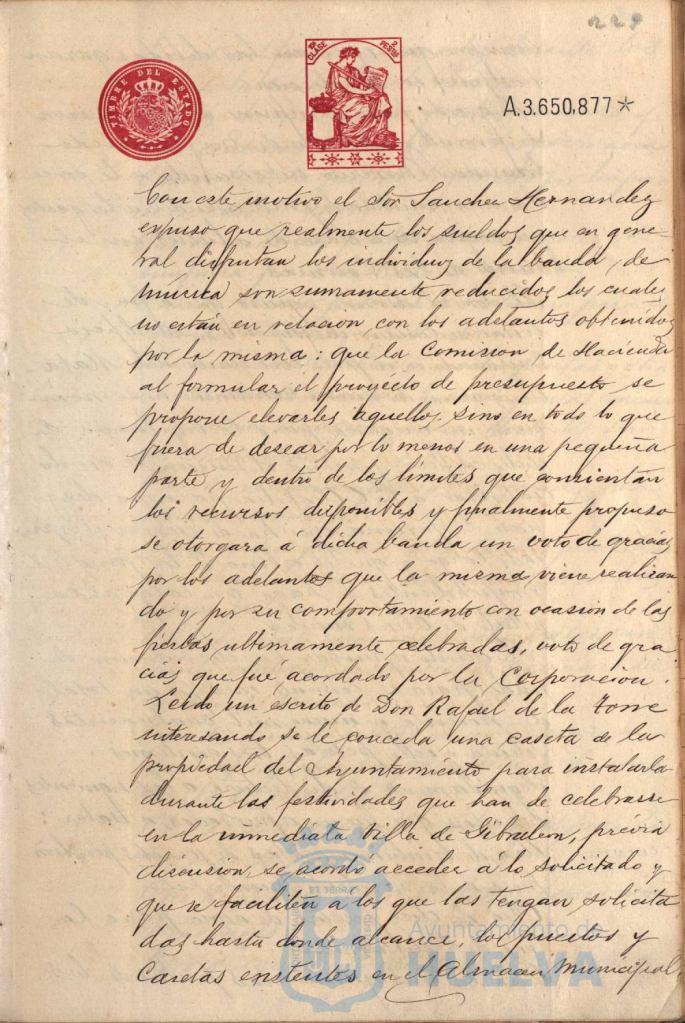 229
TIMBRE DEL ESTADO
10ª CLASE 2 PESTAS
A.3.650,877*
Con este motivo el Sor Sanchez Hernandez
expuso que realmente los sueldos que en gene-
ral disfrutan los individuos de la banda de
música son sumamente reducidos los cuales
no están en relacion con los adelantos obtenidos
por la misma: que la Comision de Hacienda
al formular el proyécto de presupuesto se
propone elevarles aquellos, sino en todo lo que
fuera de desear por lo menos en una pequeña
parte y dentro de los límites que consientan
los recursos disponibles y finalmente propuso
se otorgara á dicha banda un voto de gracias
por los adelantos que la misma viene realizan
do y por su comportamiento con ocasion de las
fiestas ultimamente celebradas, voto de gra
cias que fué acordado por la Corporacion.
Leido un escrito de Don Rafael de la Torre
interesando se le conceda una caseta de la
propiedad del Ayuntamiento para instalarla
durante las festividades que han de celebrarse
en la inmediata Villa de Gibraleon, prévia
discusion, se acordó acceder á lo solicitado y
que se faciliten a los que las tengan solicita
das hasta donde alcance, los puestos y
Casetas existentes en el Almacen Municipal.
Ayuntamiento de
HUELVA